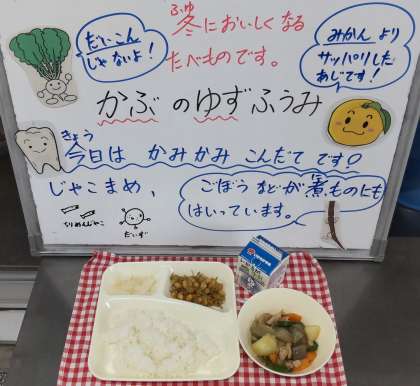 だいこん
じゃないよ！
ふゆ
冬においしくなる
たべものです。
みかんより
サッパリした
あじです！
かぶのゆずふうみ
きょう
今日は かみかみ こんだてです！
じゃこまめ、
ごぼうなどが煮ものにも
はいっています。
ちりめんじゃこ
だいず